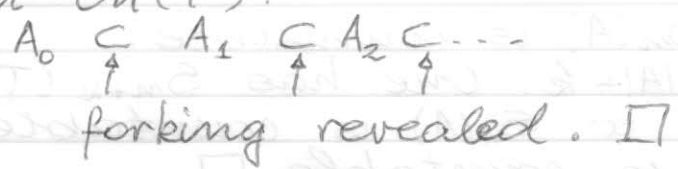 A₀ ⊂ A₁ ⊂ A₂ ⊂ ...
↑ ↑ ↑
forking revealed. □